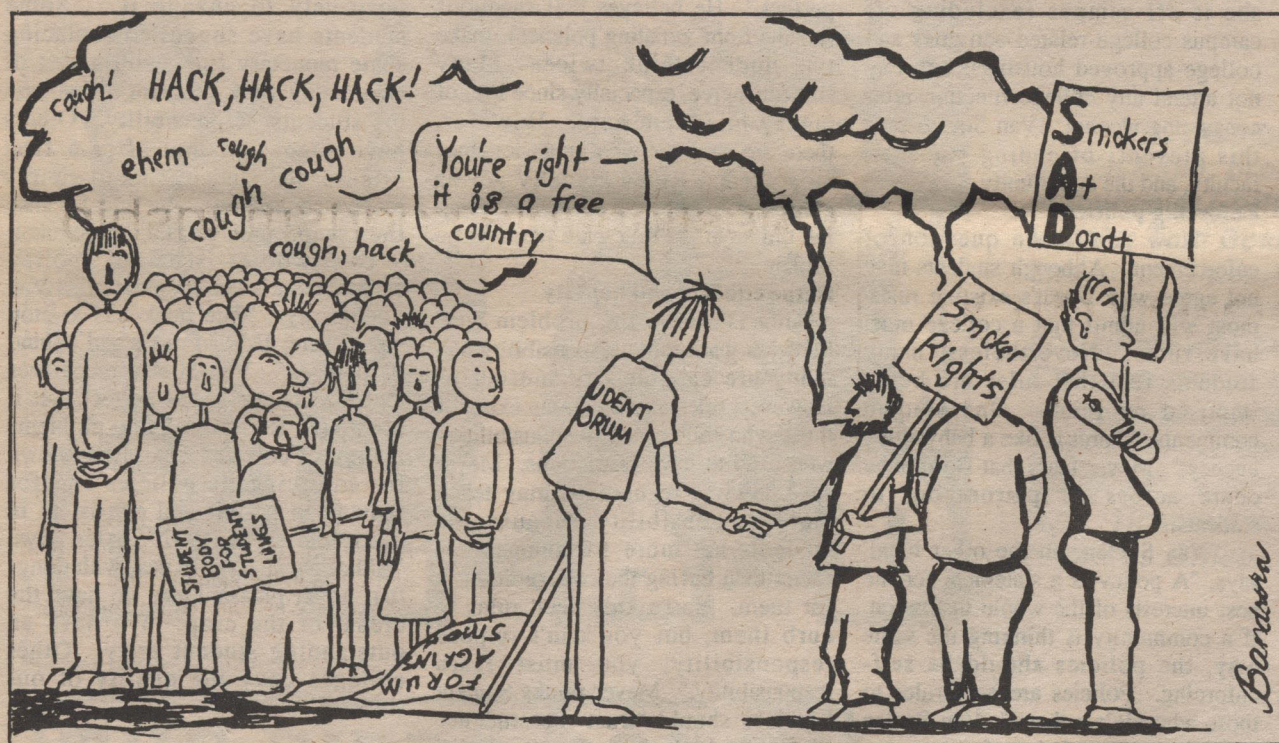 cough!
HACK, HACK, HACK!
ehem cough cough
cough
cough, hack
You're right —
it is a free
country
Smokers
At
Dordt
Smoker
Rights
UDENT
ORUM
STUDENT
BODY
FOR
STUDENT
LUNGS
FORUM
AGAINS
SMOK
Bandstra